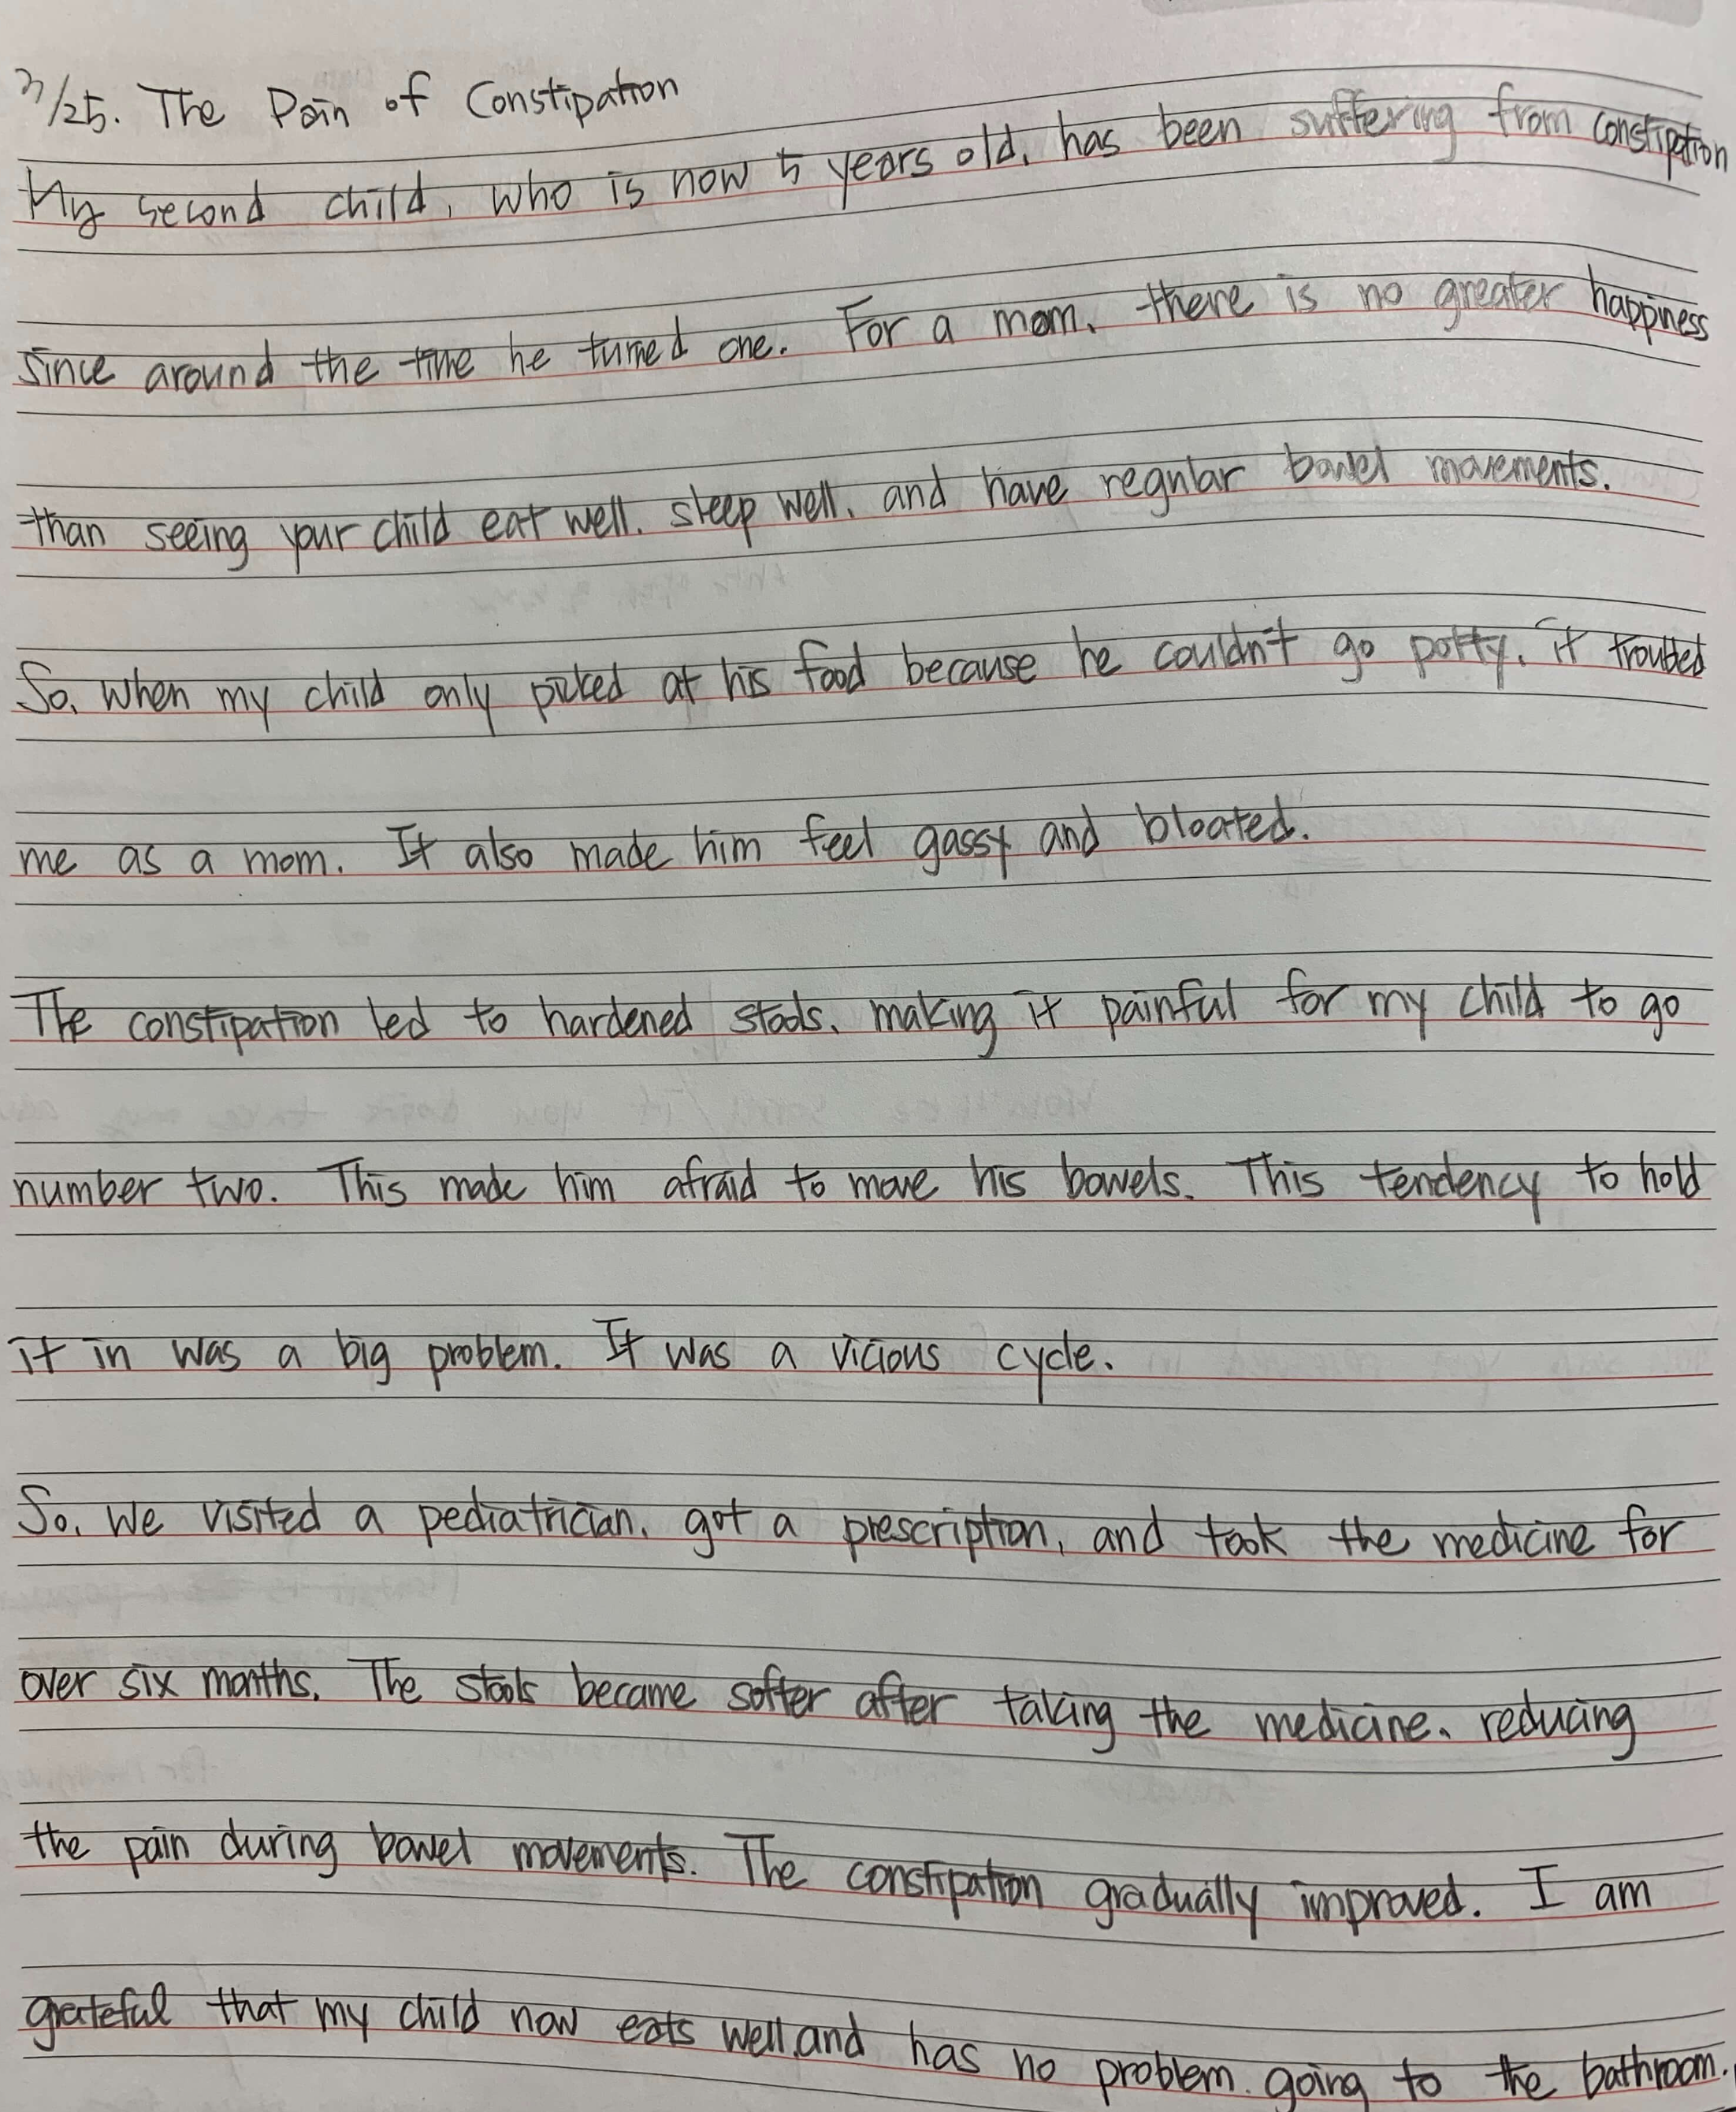 7/25. The Pain of Constipation
My second child, who is now 5 years old, has been suffering from constipation
since around the time he turned one. For a mom, there is no greater happiness
than seeing your child eat well, sleep well, and have regular bowel movements.
So, when my child only picked at his food because he couldn't go potty, it troubled
me as a mom. It also made him feel gassy and bloated.
The constipation led to hardened stools, making it painful for my child to go
number two. This made him afraid to move his bowels. This tendency to hold
it in was a big problem. It was a vicious cycle.
So, we visited a pediatrician, got a prescription, and took the medicine for
over six months. The stools became softer after taking the medicine, reducing
the pain during bowel movements. The constipation gradually improved. I am
grateful that my child now eats well, and has no problem going to the bathroom.